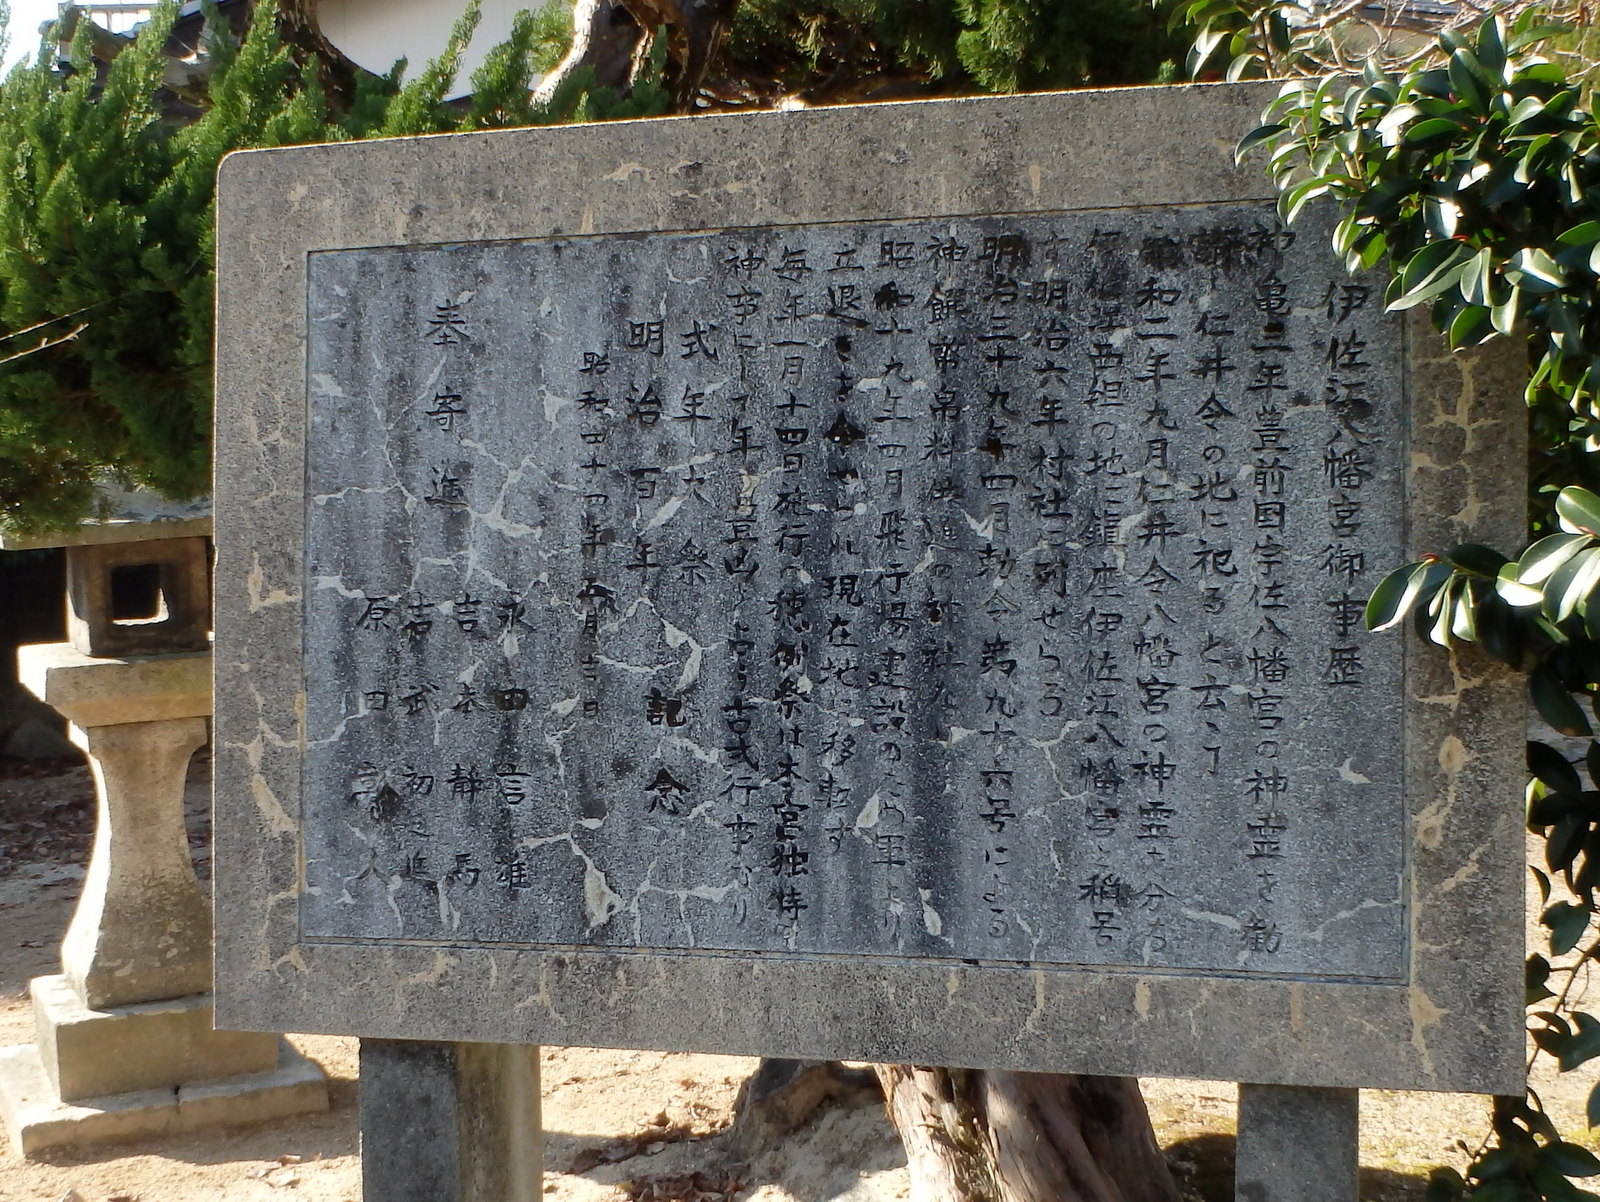 伊佐江八幡宮御事歴
神亀三年豊前国宇佐八幡宮の神霊を勧
請し仁井令の地に祀ると云ふ
和二年九月仁井令八幡宮の神霊を分ち
の地に鎮座伊佐江八幡宮と称号
す明治六年村社に列せらる
明治三十九年四月勅令第九十六号による
神饌幣帛料供進の神社
昭和十九年四月飛行場建設のため軍より
立退きを命ぜられ現在地に移転す
毎年一月十四日施行の穂例祭は本宮独特の
神事にして年占豆占と占う古式行事なり
式年大祭
明治百年 記念
昭和四十四年五月吉日
奉寄進
永田言雄
吉本静馬
吉武初之進
原田 人